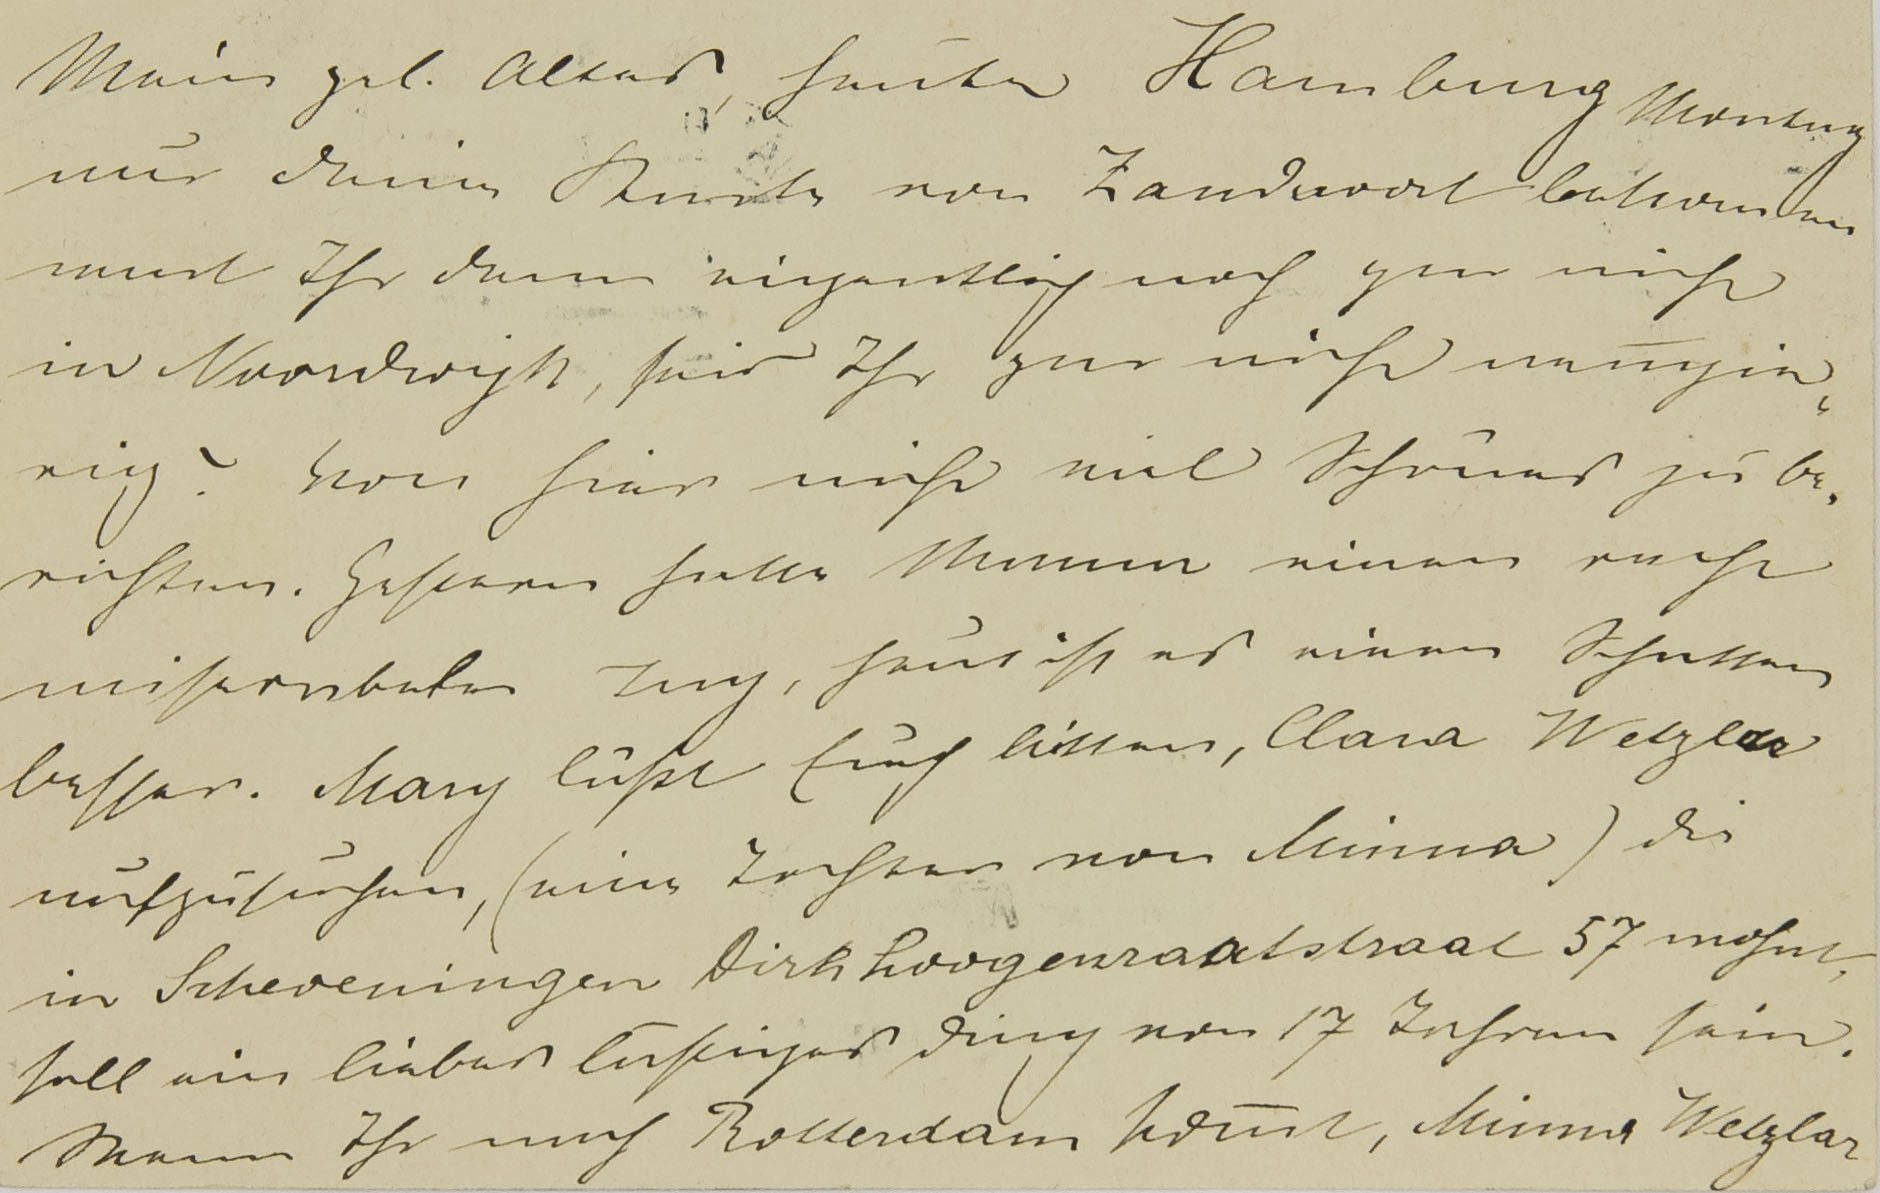 Mein gel. Alter, heute Hamburg Montag
nur deine Karte von Zandvoort bekommen
seid Ihr denn eigentlich noch gar nicht
in Noordwijk, seid Ihr gar nicht neugie„
rig? Von hier nicht viel Schönes zu be„
richten. Gestern hatte Mama einen recht
miserablen Tag, heut ist es einen Schatten
besser. Mary läßt Euch bitten, Clara Wetzlar
aufzusuchen, (eine Tochter von Minna) die
in Scheveningen Dirk hoogenraatstraat 57 wohnt,
soll ein liebes lustiges Ding von 17 Jahren sein.
Wenn Ihr nach Rotterdam kom̅t, Minna Wetzlar